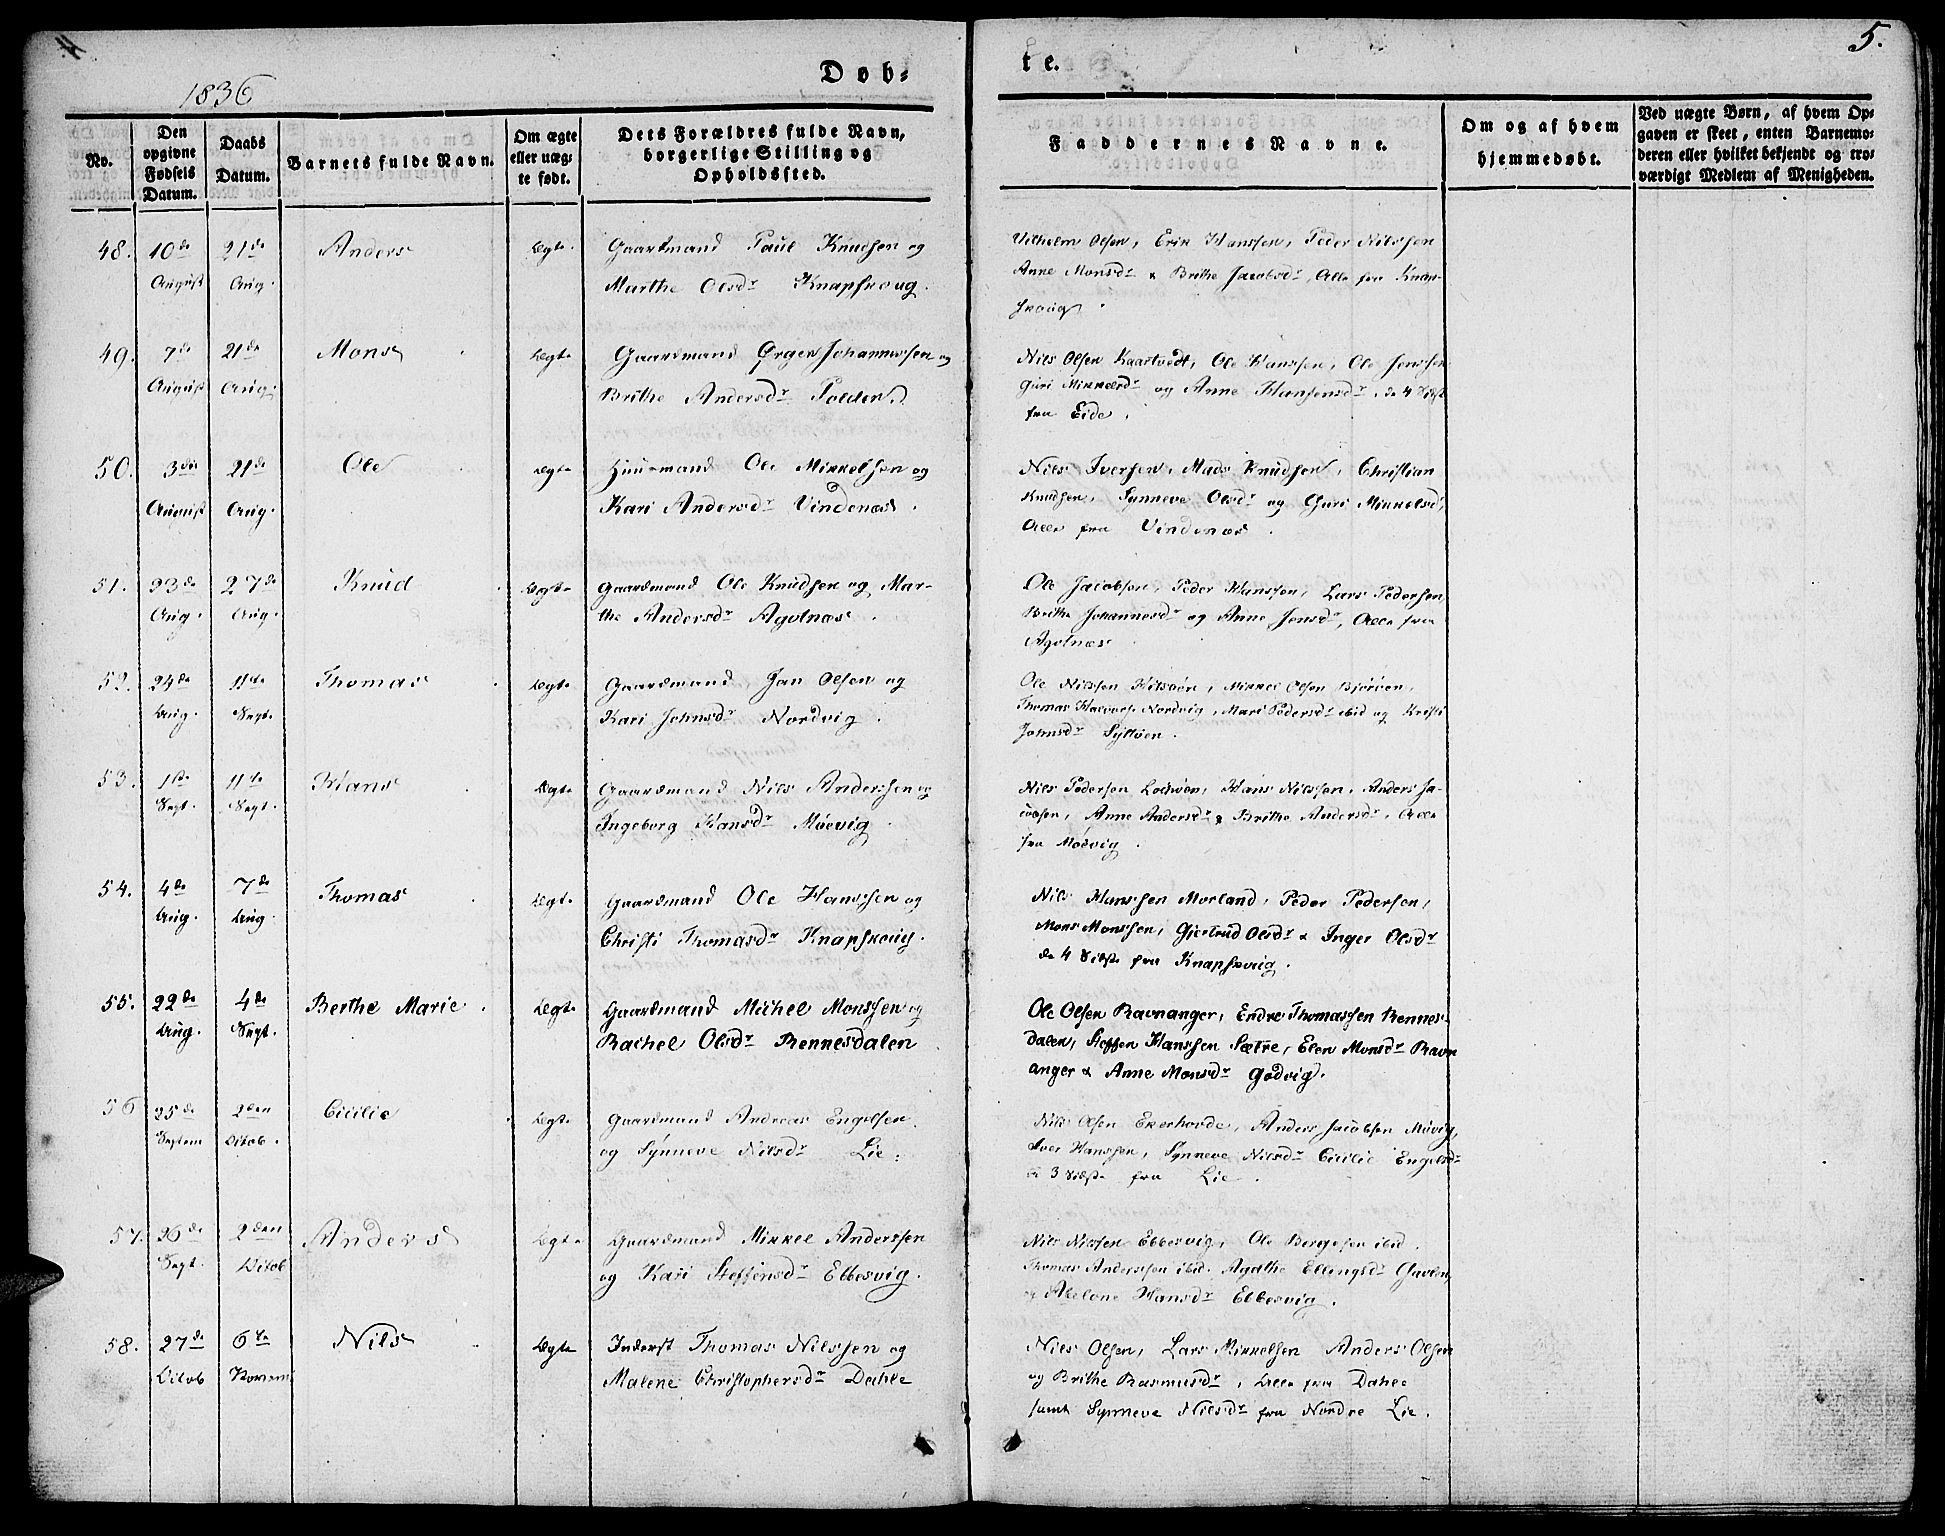 5.
1836
Døb-
te.
No.
Den opgivne Fødsels Datum.
Daabs Datum.
Barnets fulde Navn.
Om ægte eller uæg-te født.
Dets Forældres fulde Navn, borgerlige Stilling og Opholdssted.
Faddernes Navne.
Om og af hvem hjemmedøbt.
Ved uægte Børn, af hvem Op-gaven er skeet, enten Barnemo-deren eller hvilket bekjendt og tro-værdigt Medlem af Menigheden.
48. 10de August 21de Aug. Anders Ægte
Gaardmand Paul Knudsen og
Marthe Olsdr Knapskoug.
Vilhelm Olsen, Erik Hanssen, Peder Nilssen
Anne Monsdr & Brithe Jacobsdr, Alle fra Knap-
skoug
49. 7de August 21de Aug. Mons Ægte
Gaardmand Ørgen Johannessen og
Brithe Andersdr Polden
Nils Olsen Kaartvedt, Ole Hanssen, Ole Jenssen
Guri Mikkelsdr og Anne Hansensdr, de 4 sidste
fra Eide.
50. 3die August 21de Aug. Ole Ægte
Huusmand Ole Mikkelsen og
Kari Andersdr Vindenæs.
Nils Iversen, Mads Knudsen, Christian
Knudsen, Synneve Olsdr og Guri Mikkelsdr,
Alle fra Vindenæs.
51. 23de Aug. 27de Aug. Knud Ægte
Gaardmand Ole Knudsen og Mar-
the Andersdr Agotnæs.
Ole Jacobsen, Peder Hanssen, Lars Pedersen
Brithe Johannesdr og Anne Jensdr, Alle fra
Agotnæs
52. 24de Aug. 11te Sept. Thomas Ægte
Gaardmand Jan Olsen og
Kari Johnsdr Nordvig.
Ole Nilssen, Mikkel Olsen Bjørøen,
Thomas Nordvig, Mari Pedersdr ibid og Kristi
Johnsdr Syltøen.
53. 1ste Sept. 11te Sept. Hans Ægte
Gaardmand Nils Anderssen og
Ingeborg Hansdr Møvig.
Nils Pedersen, Hans Nilssen, Anders Ja-
cobsen, Anne Andersdr & Brithe Andersdr, Alle
fra Møvig.
54. 4de Aug. 7de Aug. Thomas Ægte
Gaardmand Ole Hanssen og
Christi Thomasdr Knapskoug.
Nils Hanssen Morland, Peder Pedersen,
Mons Monssen, Gjertrud Olsdr & Inger Olsdr
de 4 sidste fra Knapskoug.
55. 22de Aug. 4de Sept. Berthe Marie Ægte
Gaardmand Michel Monssen og
Rachel Olsdr Rennesdalen
Ole Olsen Ravnanger, Endre Thomassen Rennes-
dalen, Steffen Hanssen Sætre, Elen Monsdr Ravn
anger & Anne Monsdr Godvig.
56 25de Septem 2den Octob. Cicilie Ægte
Gaardmand Andreas Engelsen
og Synneve Nilsdr Lie.
Nils Olsen Ekerhovde, Anders Jacobsen Møvig,
Iver Hanssen, Synneve Nilsdr Cicilie Engelsdr
de 3 sidste fra Lie.
57. 26de Sept. 2den Octob Anders Ægte
Gaardmand Mikkel Anderssen
og Kari Steffensdr Ebbesvig.
Nils Nilssen Ebbesvig, Ole Bergesen ibid.
Thomas Anderssen ibid. Agathe Ellingsdr Gavlen
og Abelone Hansdr Ebbesvig.
58. 27de Octob 6te Novem Nils Ægte
Inderst Thomas Nilssen og
Malene Christophersdr Dahle
Nils Olsen, Lars Mikkelsen Anders Olsen
og Brithe Rasmusdr, Alle fra Dahle
samt Synneve Nilsdr fra Nordre Lie.